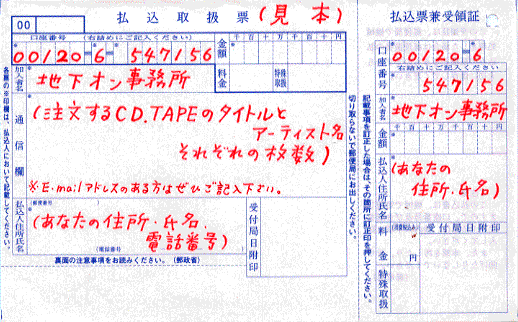 00
払込取扱票
(見本)
口座番号 (右詰めにご記入ください)
00120 6 547156
金額
千 百 十 万 千 百 十 円
加入者名
地下オン事務所
料金
特殊取扱
通信欄
(注文するCD.TAPEのタイトルと
アーティスト名
それぞれの枚数)
※E-mailアドレスのある方はぜひご記入下さい。
払込人住所氏名
(郵便番号)
(あなたの住所・氏名・
電話番号)
(電話番号)
受付局日附印
裏面の注意事項をお読みください。(郵政省)
各票の※印欄は、払込人において記載してください。
切り取らないで郵便局にお出しください。
記載事項を訂正した場合は、その箇所に訂正印を押してください。
払込票兼受領証
口座番号
00120 6
右詰めにご記入ください
547156
加入者名
地下オン事務所
金額
千 百 十 万 千 百 十 円
払込人住所氏名
(あなたの
住所・氏名)
料金
(消費税込み)
円
特殊取扱
受付局日附印